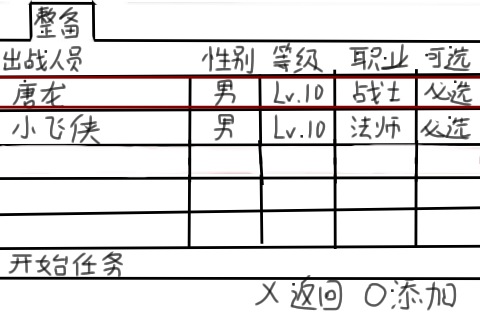 整备
出战人员 性别 等级 职业 可选
唐龙 男 Lv.10 战士 必选
小飞侠 男 Lv.10 法师 必选
开始任务
X 返回 O 添加